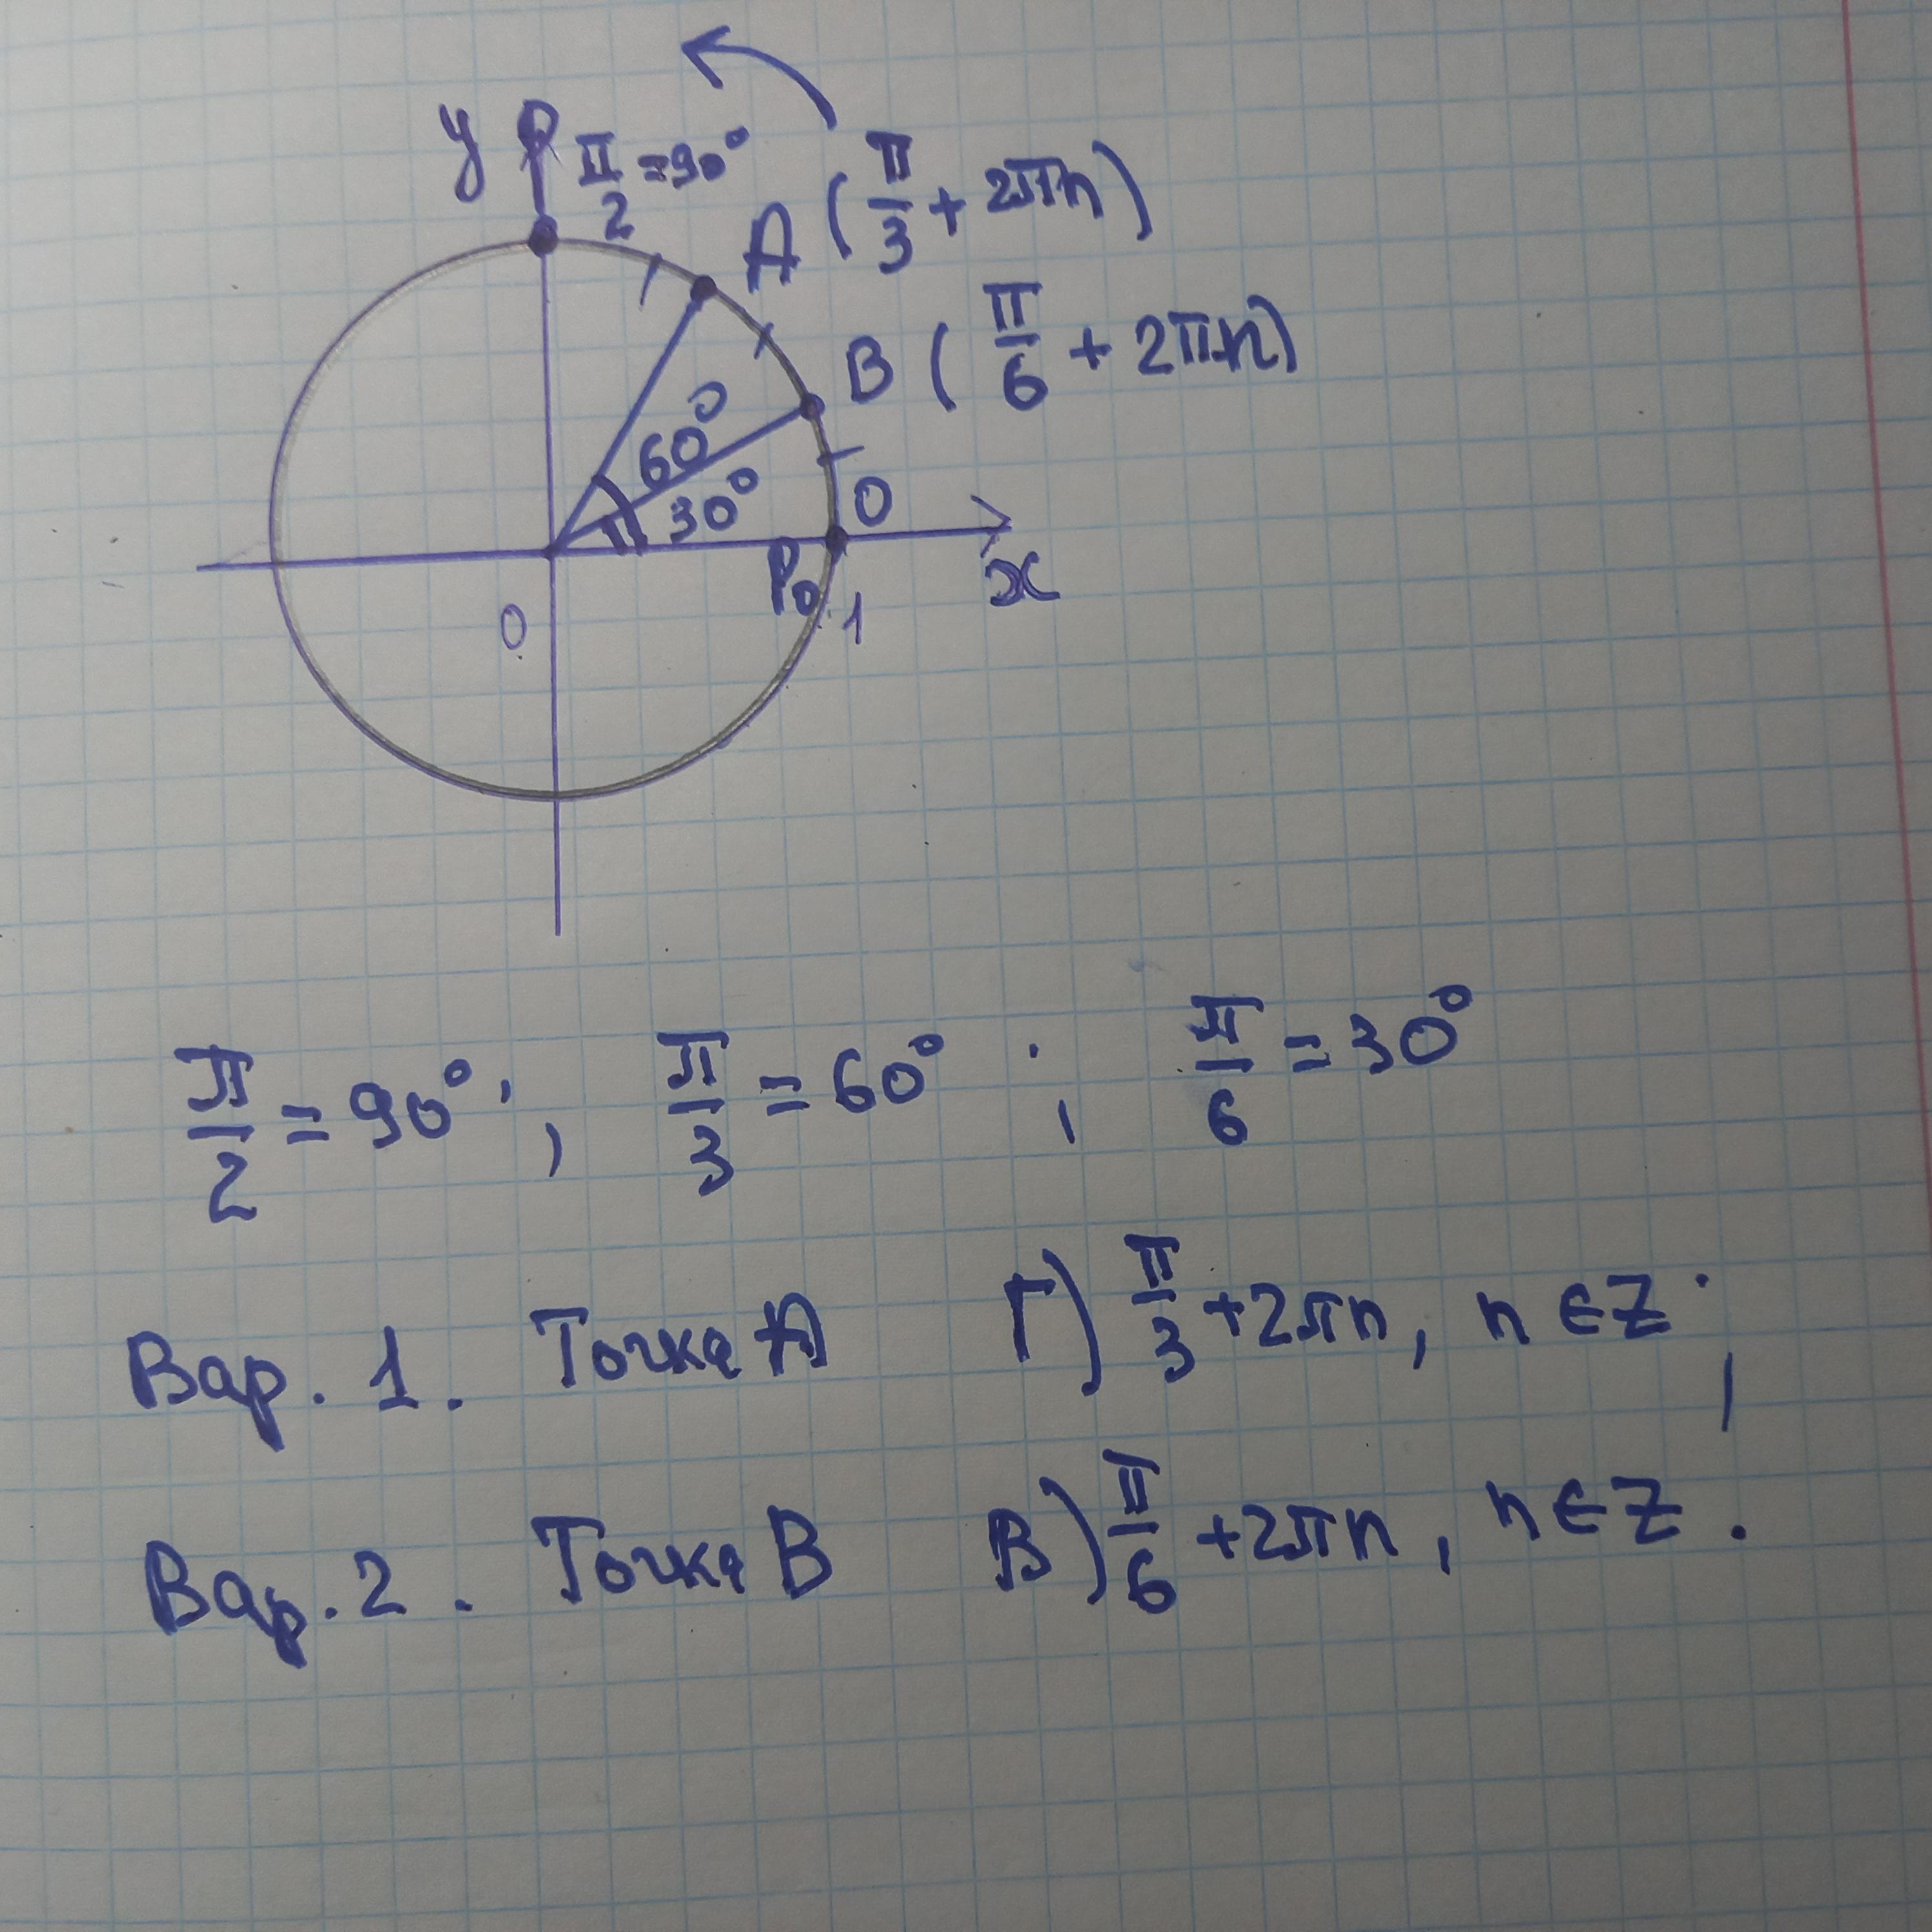 y
π/2 = 90°
A (π/3 + 2πn)
B (π/6 + 2πn)
60°
30°
0
P₀
x
0
1
π/2 = 90°; π/3 = 60°; π/6 = 30°
Вар. 1. Точка А Г) π/3 + 2πn, n ∈ Z;
Вар. 2. Точка В В) π/6 + 2πn, n ∈ Z.